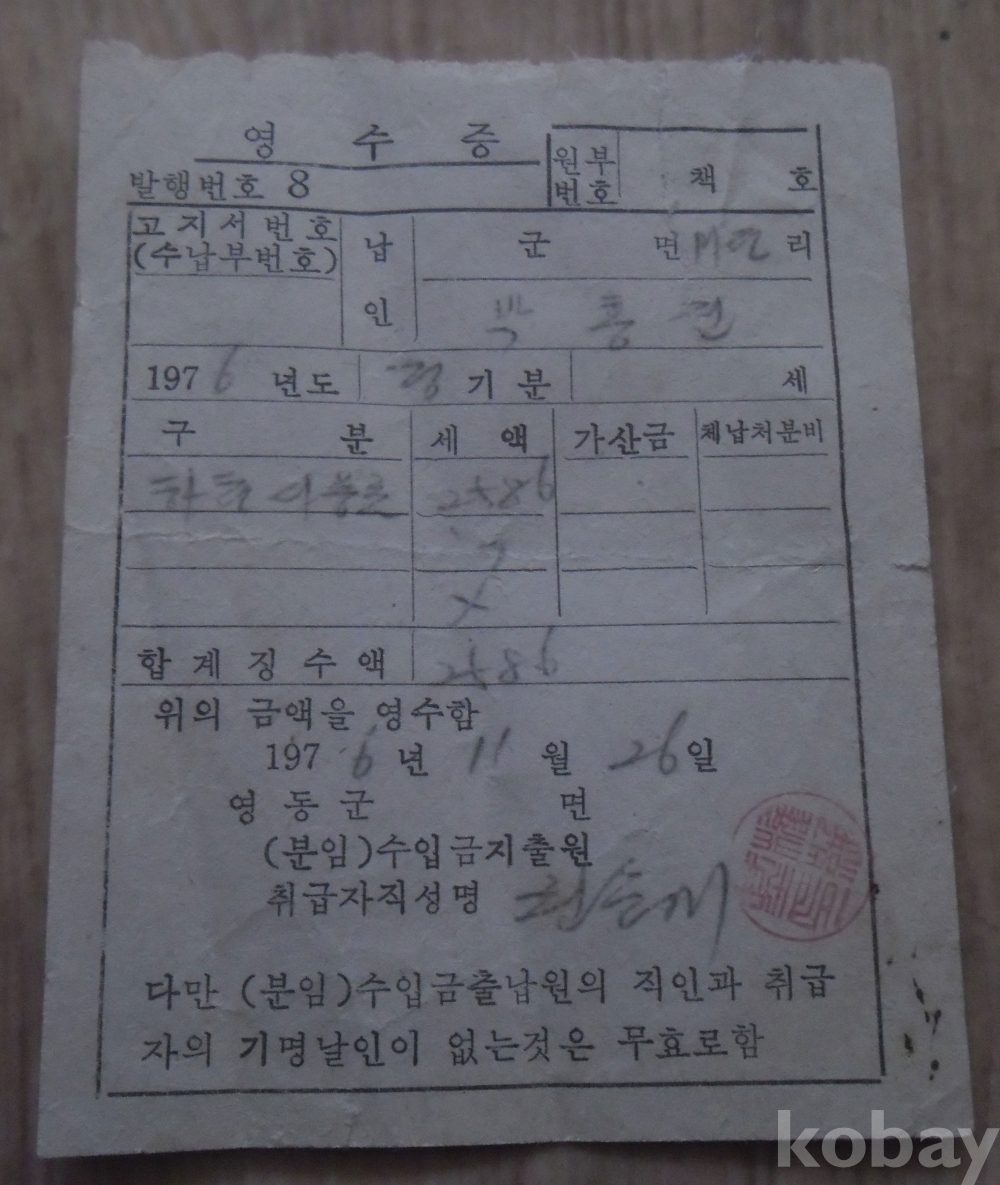 영 수 증
발행번호 8
원부번호 책 호
고지서번호
(수납부번호)
납인
군 면 리
박
1976 년도 정기분 세
구 분 세 액 가산금 체납처분비
2586
합계징수액 2586
위의 금액을 영수함
1976년 11월 26일
영동군 면
(분임)수입금지출원
취급자직성명
다만 (분임)수입금출납원의 직인과 취급
자의 기명날인이 없는것은 무효로함
kobay